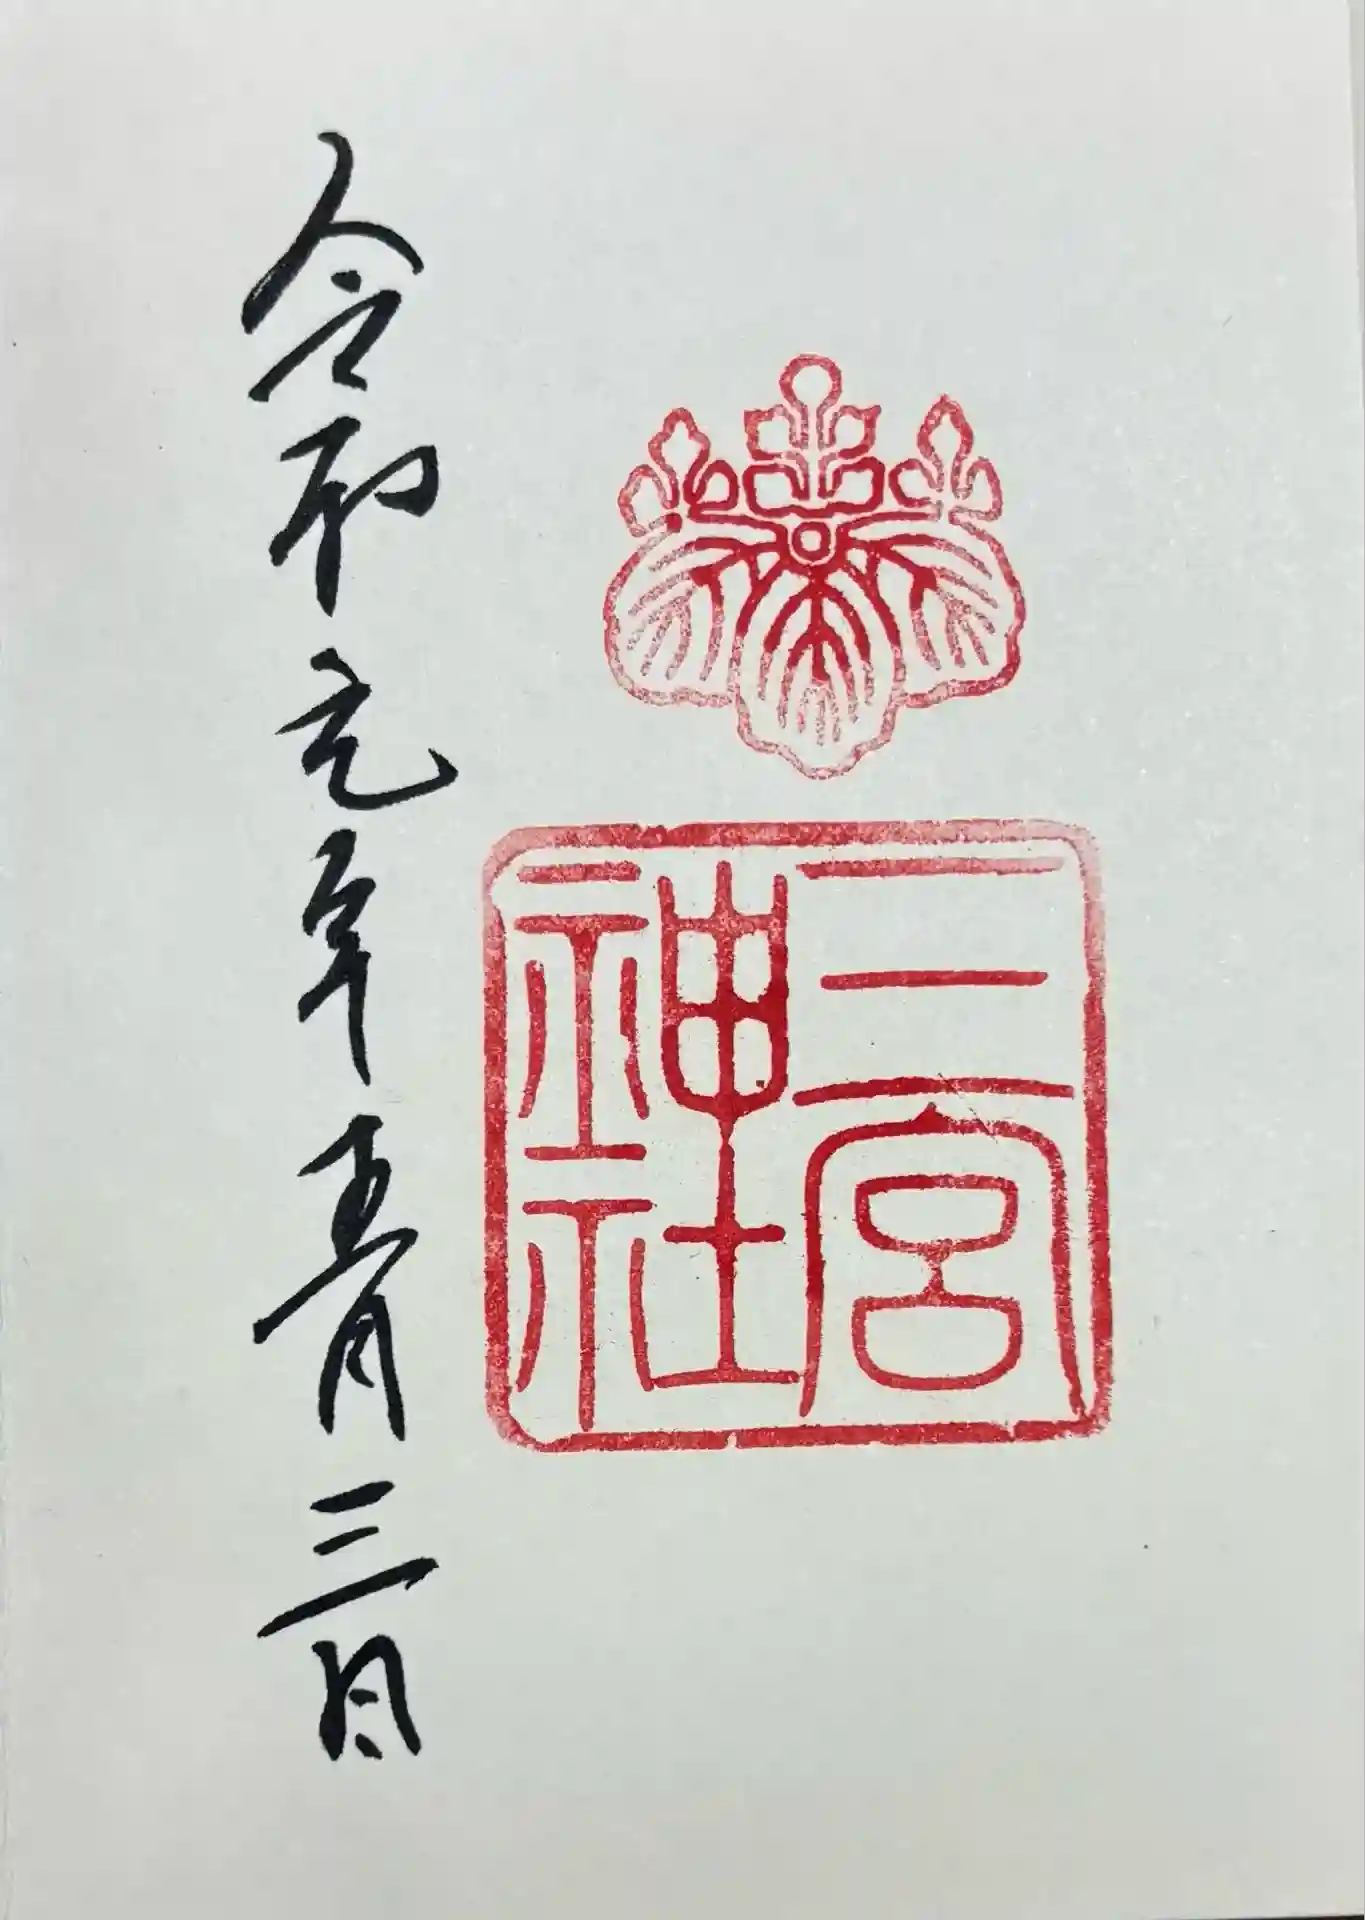 三宮
神社
令和元年五月三日